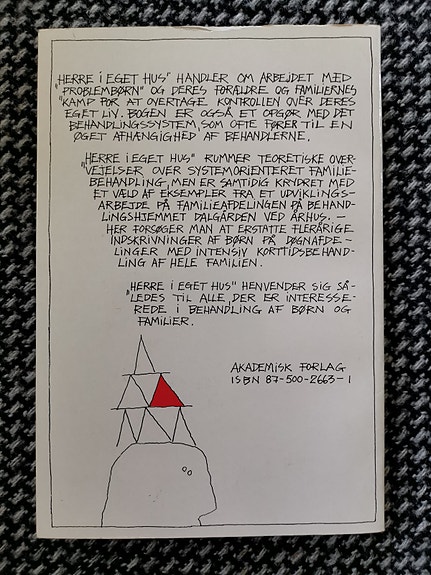 "HERRE I EGET HUS" HANDLER OM ARBEJDET MED
"PROBLEMBØRN" OG DERES FORÆLDRE OG FAMILIERNES
"KAMP FOR AT OVERTAGE KONTROLLEN OVER DERES
EGET LIV. BOGEN ER OGSÅ ET OPGØR MED DET
BEHANDLINGSSYSTEM, SOM OFTE FØRER TIL EN
ØGET AFHÆNGIGHED AF BEHANDLERNE.
"HERRE I EGET HUS" RUMMER TEORETISKE OVER-
VEJELSER OVER SYSTEMORIENTERET FAMILIE-
BEHANDLING, MEN ER SAMTIDIG KRYDRET MED
ET VÆLD AF EKSEMPLER FRA ET UDVIKLINGS-
ARBEJDE PÅ FAMILIEAFDELINGEN PÅ BEHAND-
LINGSHJEMMET DALGÅRDEN VED ÅRHUS. —
HER FORSØGER MAN AT ERSTATTE FLERÅRIGE
INDSKRIVNINGER AF BØRN PÅ DØGNAFDE-
LINGER MED INTENSIV KORTTIDSBEHAND-
LING AF HELE FAMILIEN.
"HERRE I EGET HUS" HENVENDER SIG SÅ-
LEDES TIL ALLE, DER ER INTERESSE-
REDE I BEHANDLING AF BØRN OG
FAMILIER.
AKADEMISK FORLAG
ISBN 87-500-2663-1